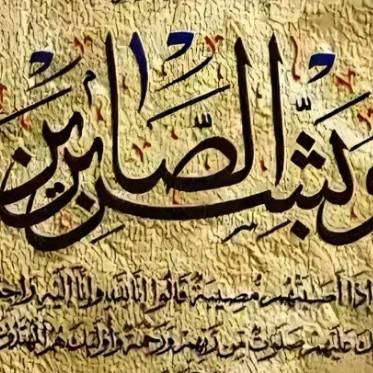 وَبَشِّرِ الصَّابِرِينَ
اذا أصابتهم مصيبة قالوا انا لله وانا اليه راجعو
ك عليهم صلوت من ربهم ورحمة وأولئك هم المهتدون